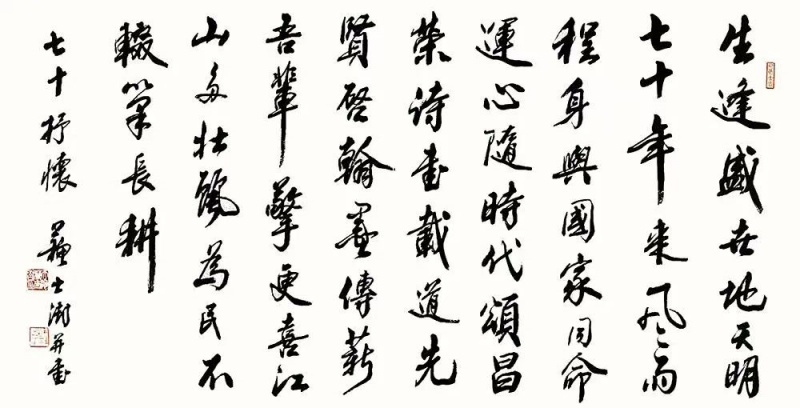 生逢盛世地天明
七十年来风雨
程身與國家同命
運心隨時代頌昌
榮诗書載道先
賢啓翰墨傳薪
吾輩擎更喜江
山多壮麗為民不
輟筆長耕
七十抒懷 蘇士澍并書